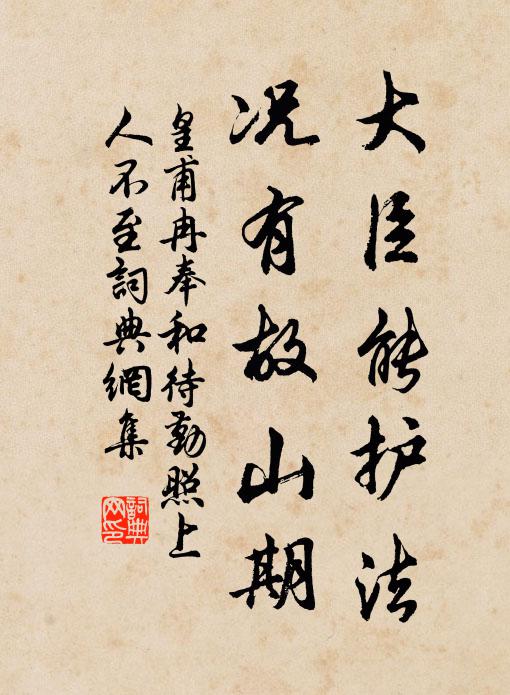 大臣能护法
况有故山期
皇甫冉奉和待勤照上
人不至詞典網集
詞典
网印